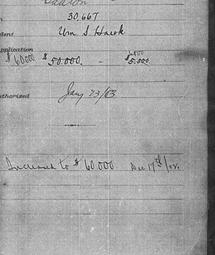 30,667
Wm S Hawk
pplication
$60000 $50.000. - $5.000.
uthorised Jany 23/03
Increased to $60.000 Dec 17th/02